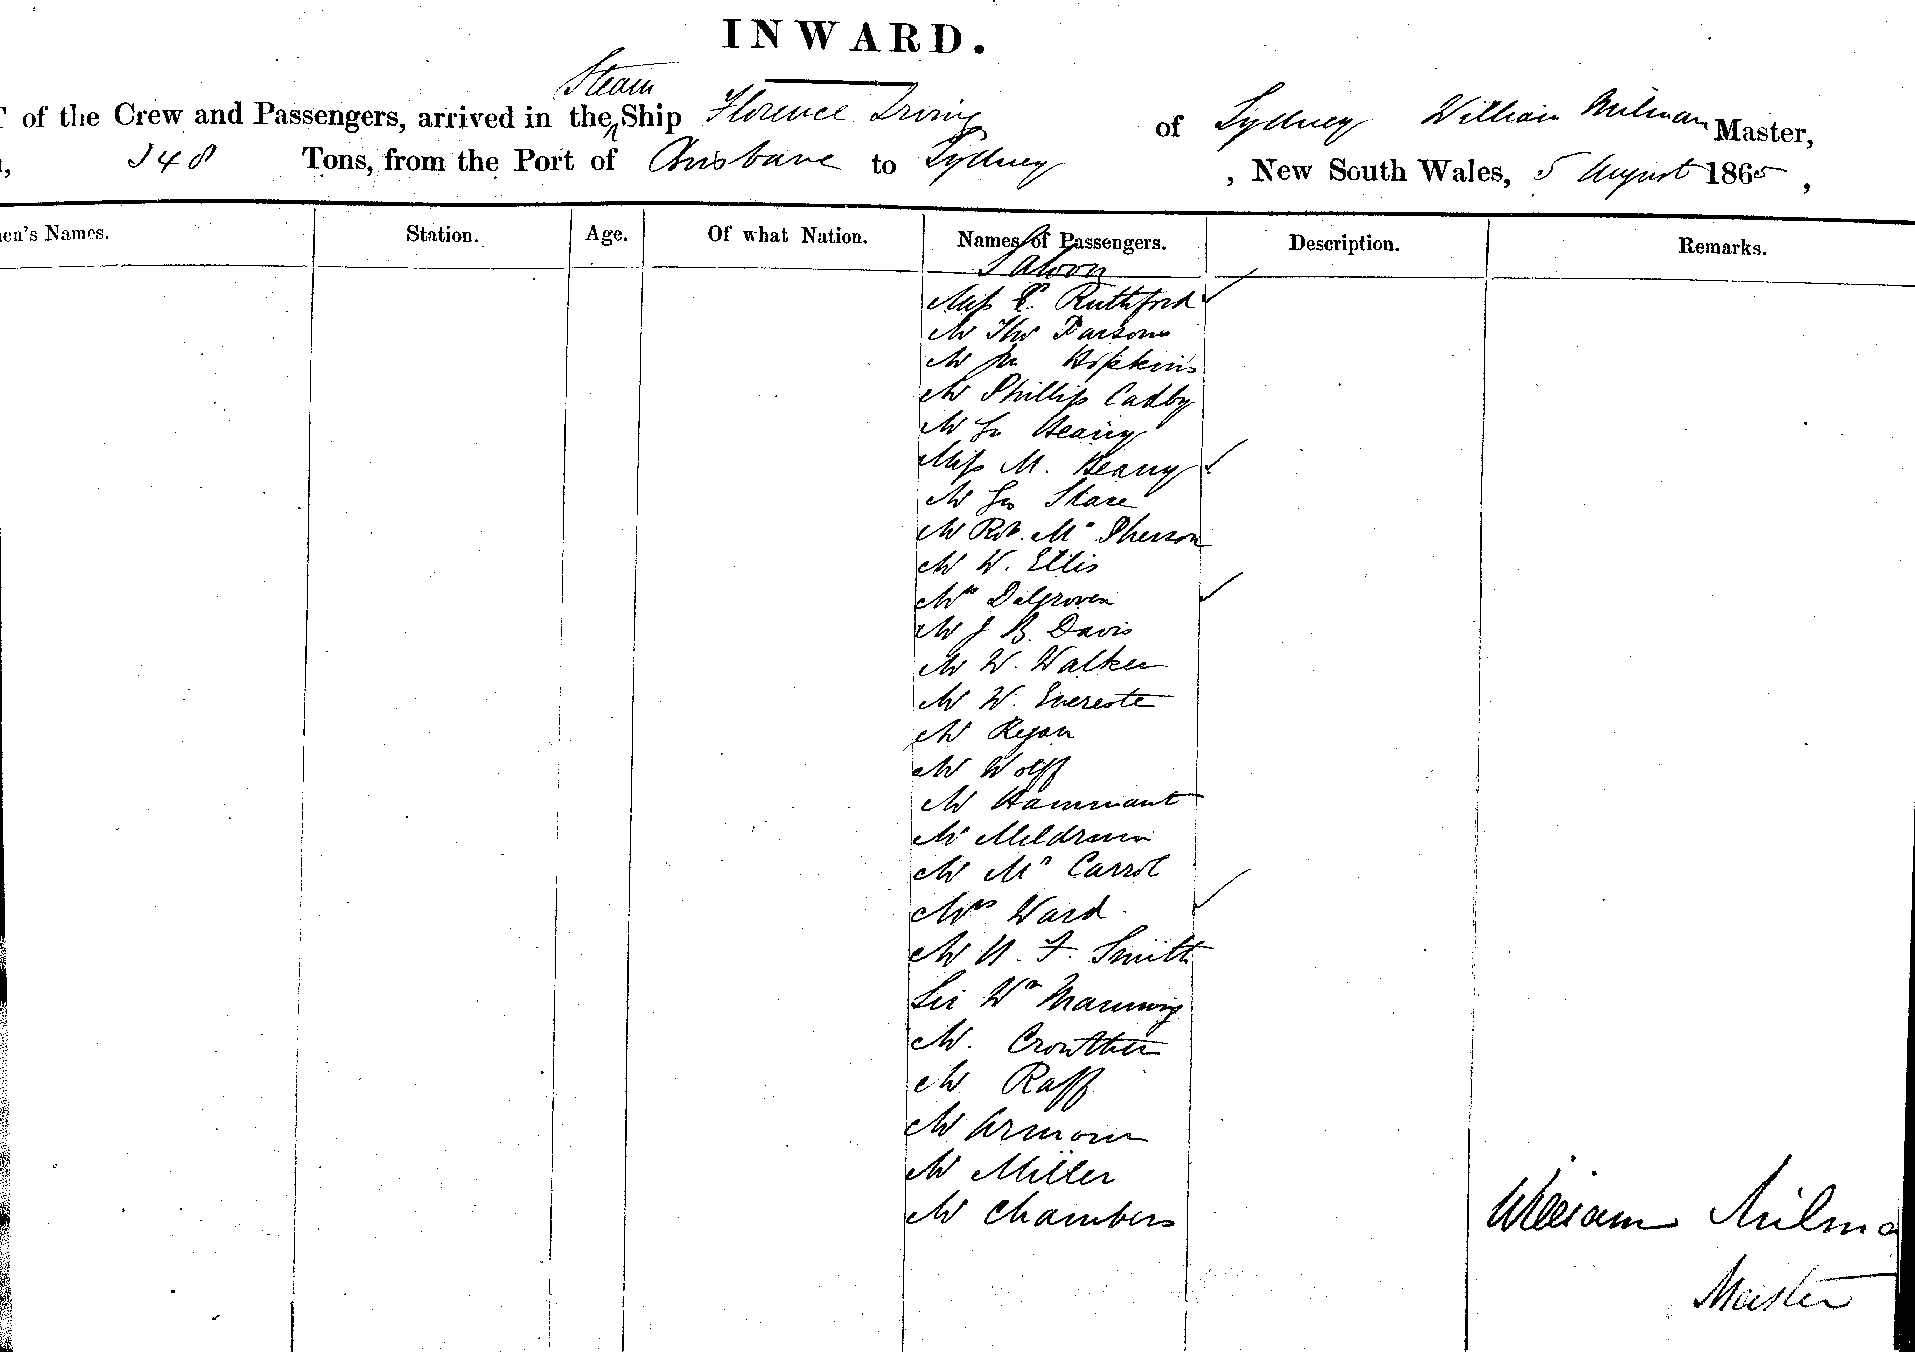 INWARD.
Steam
of the Crew and Passengers, arrived in the Ship Florence Irving of Sydney William Milman Master,
348 Tons, from the Port of Brisbane to Sydney, New South Wales, 5 August 1865,
en's Names. Station. Age. Of what Nation. Names of Passengers. Description. Remarks.
Saloon
Miss Ruthford
Mr Thos Parsons
Mr Hopkins
Mr Phillip Cadby
Mr Heany
Miss M. Heany
Mr Geo Skare
Mr Robt. Mc Pherson
Mr W. Ellis
Mrs
Mr J B. Davis
Mr W. Walker
Mr W. Evereste
Mr Ryan
Mr Wolff
Mr Hammant
Mr Meldrum
Mr Mc Carrol
Mrs Ward
Mr F. Smith
Sir Wm Manning
Mr. Crowther
Mr Raff
Mr Armour
Mr Miller
Mr Chambers
William Milma
Master